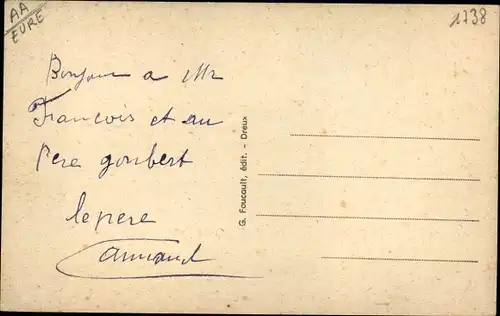 AA
EURE
1738
Bonjour a Mr
Francois et au
Pere goubert
lepere
Armand
G. Foucault, édit. - Dreux